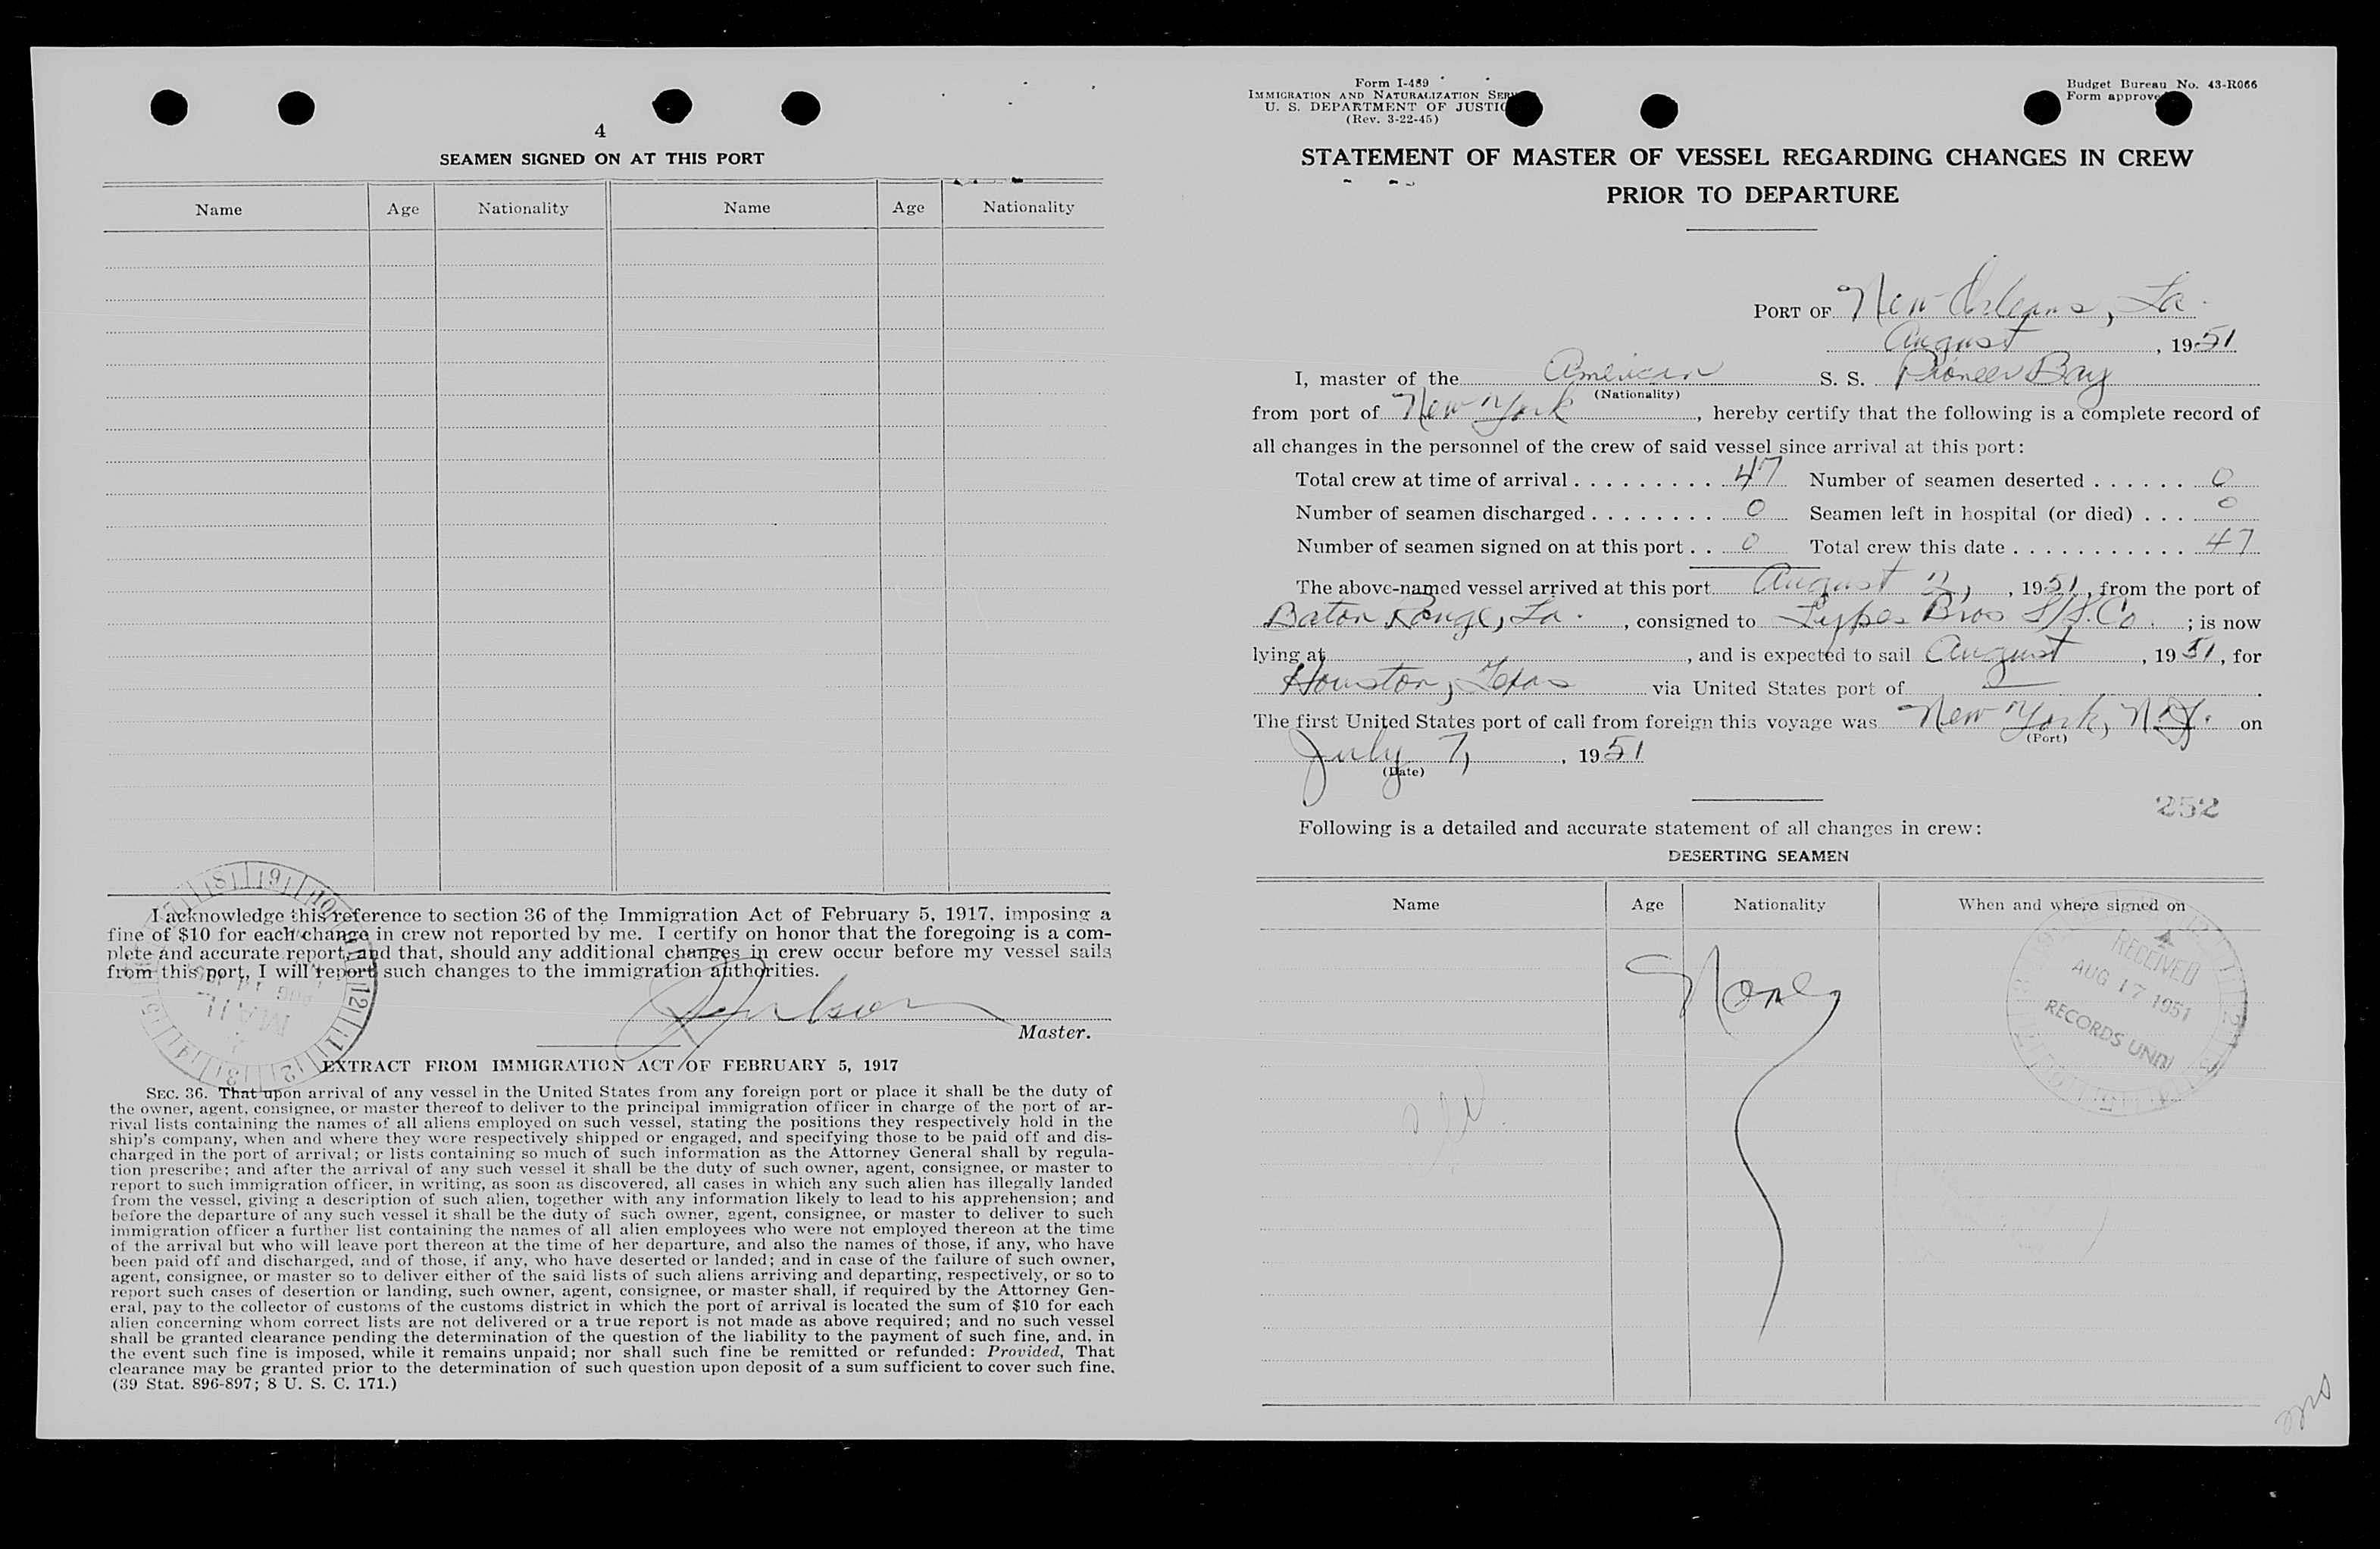 4
SEAMEN SIGNED ON AT THIS PORT
Name Age Nationality Name Age Nationality
I acknowledge this reference to section 36 of the Immigration Act of February 5, 1917, imposing a
fine of $10 for each change in crew not reported by me. I certify on honor that the foregoing is a com-
plete and accurate report, and that, should any additional changes in crew occur before my vessel sails
from this port, I will report such changes to the immigration authorities.
Master.
EXTRACT FROM IMMIGRATION ACT OF FEBRUARY 5, 1917
SEC. 36. That upon arrival of any vessel in the United States from any foreign port or place it shall be the duty of
the owner, agent, consignee, or master thereof to deliver to the principal immigration officer in charge of the port of ar-
rival lists containing the names of all aliens employed on such vessel, stating the positions they respectively hold in the
ship's company, when and where they were respectively shipped or engaged, and specifying those to be paid off and dis-
charged in the port of arrival; or lists containing so much of such information as the Attorney General shall by regula-
tion prescribe; and after the arrival of any such vessel it shall be the duty of such owner, agent, consignee, or master to
report to such immigration officer, in writing, as soon as discovered, all cases in which any such alien has illegally landed
from the vessel, giving a description of such alien, together with any information likely to lead to his apprehension; and
before the departure of any such vessel it shall be the duty of such owner, agent, consignee, or master to deliver to such
immigration officer a further list containing the names of all alien employees who were not employed thereon at the time
of the arrival but who will leave port thereon at the time of her departure, and also the names of those, if any, who have
been paid off and discharged, and of those, if any, who have deserted or landed; and in case of the failure of such owner,
agent, consignee, or master so to deliver either of the said lists of such aliens arriving and departing, respectively, or so to
report such cases of desertion or landing, such owner, agent, consignee, or master shall, if required by the Attorney Gen-
eral, pay to the collector of customs of the customs district in which the port of arrival is located the sum of $10 for each
alien concerning whom correct lists are not delivered or a true report is not made as above required; and no such vessel
shall be granted clearance pending the determination of the question of the liability to the payment of such fine, and, in
the event such fine is imposed, while it remains unpaid; nor shall such fine be remitted or refunded: Provided, That
clearance may be granted prior to the determination of such question upon deposit of a sum sufficient to cover such fine.
(39 Stat. 896-897; 8 U. S. C. 171.)
Form I-489
IMMIGRATION AND NATURALIZATION SER
U. S. DEPARTMENT OF JUSTIC
(Rev. 3-22-45)
Budget Bureau No. 43-R066
Form approve
STATEMENT OF MASTER OF VESSEL REGARDING CHANGES IN CREW
PRIOR TO DEPARTURE
PORT OF New Orleans, La.
August, 1951
I, master of the American S. S. Pioneer Bay
(Nationality)
from port of New York, hereby certify that the following is a complete record of
all changes in the personnel of the crew of said vessel since arrival at this port:
Total crew at time of arrival . . . . . . . . . 47 Number of seamen deserted . . . . . . 0
Number of seamen discharged . . . . . . . . 0 Seamen left in hospital (or died) . . . 0
Number of seamen signed on at this port . . 0 Total crew this date . . . . . . . . . . . 47
The above-named vessel arrived at this port August 2, , 1951, from the port of
Baton Rouge, La. , consigned to Lykes Bros S/S. Co. ; is now
lying at , and is expected to sail August , 1951, for
Houston, Texas via United States port of —.
The first United States port of call from foreign this voyage was New York, N.Y. on
(Port)
July 7, , 1951
(Date)
252
Following is a detailed and accurate statement of all changes in crew:
DESERTING SEAMEN
Name Age Nationality When and where signed on
None
RECEIVED
AUG 17 1951
RECORDS